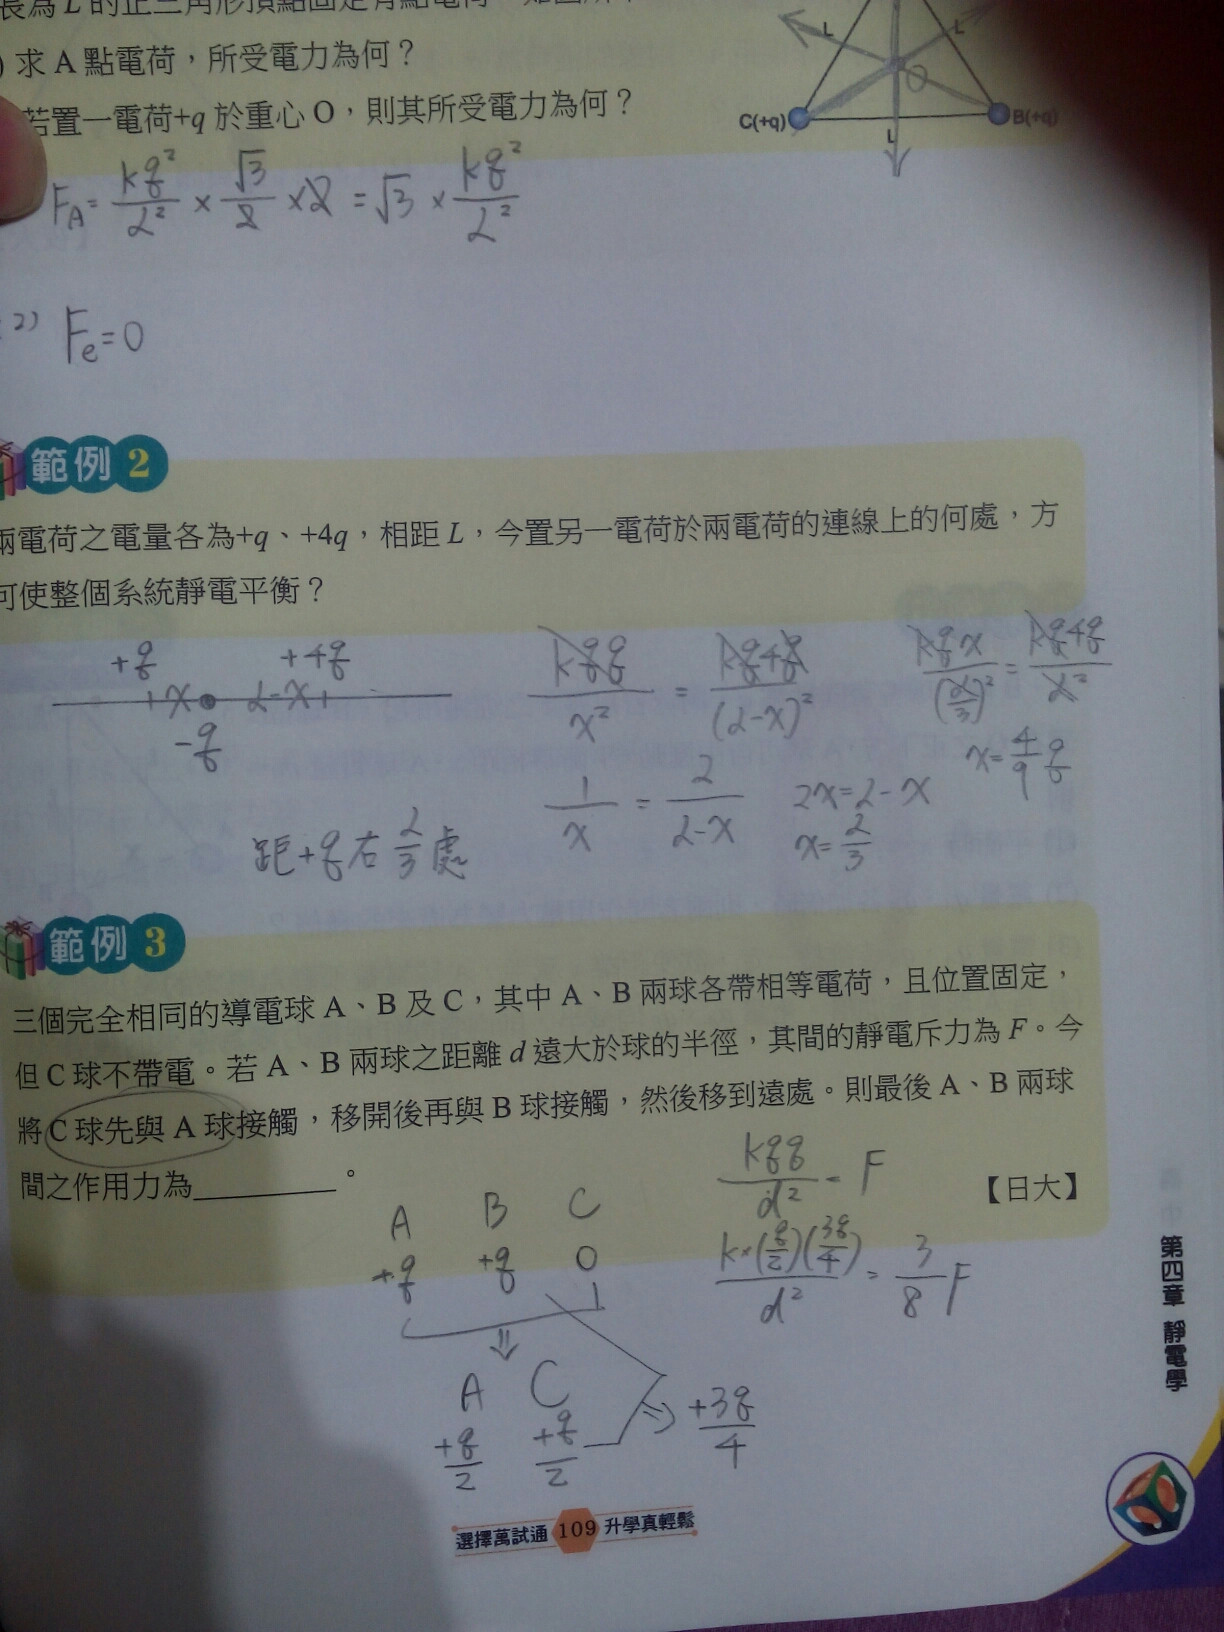 長為 L 的正三角形頂點固定有點電荷,如圖所
) 求 A 點電荷,所受電力為何?
若置一電荷+q 於重心 O,則其所受電力為何?
L
L
O
C(+q)
L
B(+q)
F_A = kq²/L² × √3/2 × 2 = √3 × kq²/L²
2) Fe = 0
範例 2
兩電荷之電量各為+q、+4q,相距 L,今置另一電荷於兩電荷的連線上的何處,方
可使整個系統靜電平衡?
+q +4q
x L-x
-q
kqq/x² = kq4q/(L-x)²
1/x = 2/(L-x)
2x = L-x
x = L/3
kqx/(L/3)² = kq4q/L²
x = 4/9 q
距+q右 L/3 處
範例 3
三個完全相同的導電球 A、B 及 C,其中 A、B 兩球各帶相等電荷,且位置固定,
但 C 球不帶電。若 A、B 兩球之距離 d 遠大於球的半徑,其間的靜電斥力為 F。今
將 C 球先與 A 球接觸,移開後再與 B 球接觸,然後移到遠處。則最後 A、B 兩球
間之作用力為__________。
【日大】
kqq/d² = F
k×(q/2)(3q/4)/d² = 3/8 F
A B C
+q +q 0
⇓
A C
+q/2 +q/2 ⇒ +3q/4
第四章 靜電學
選擇萬試通 109 升學真輕鬆